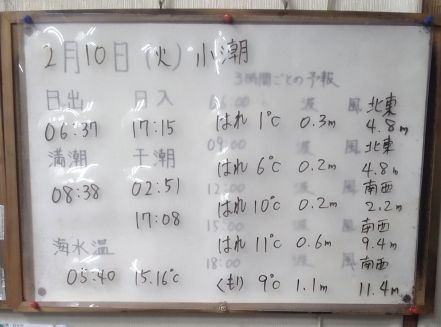 2月10日(火)小潮
3時間ごとの予報
日出 日入
06:37 17:15
満潮 干潮
08:38 02:51
17:08
海水温
05:40 15.16℃
06:00 波 風 北東
はれ 1℃ 0.3m 4.8m
09:00 波 風 北東
はれ 6℃ 0.2m 4.8m
12:00 波 風 南西
はれ 10℃ 0.2m 2.2m
15:00 波 風 南西
はれ 11℃ 0.6m 9.4m
18:00 波 風 南西
くもり 9℃ 1.1m 11.4m